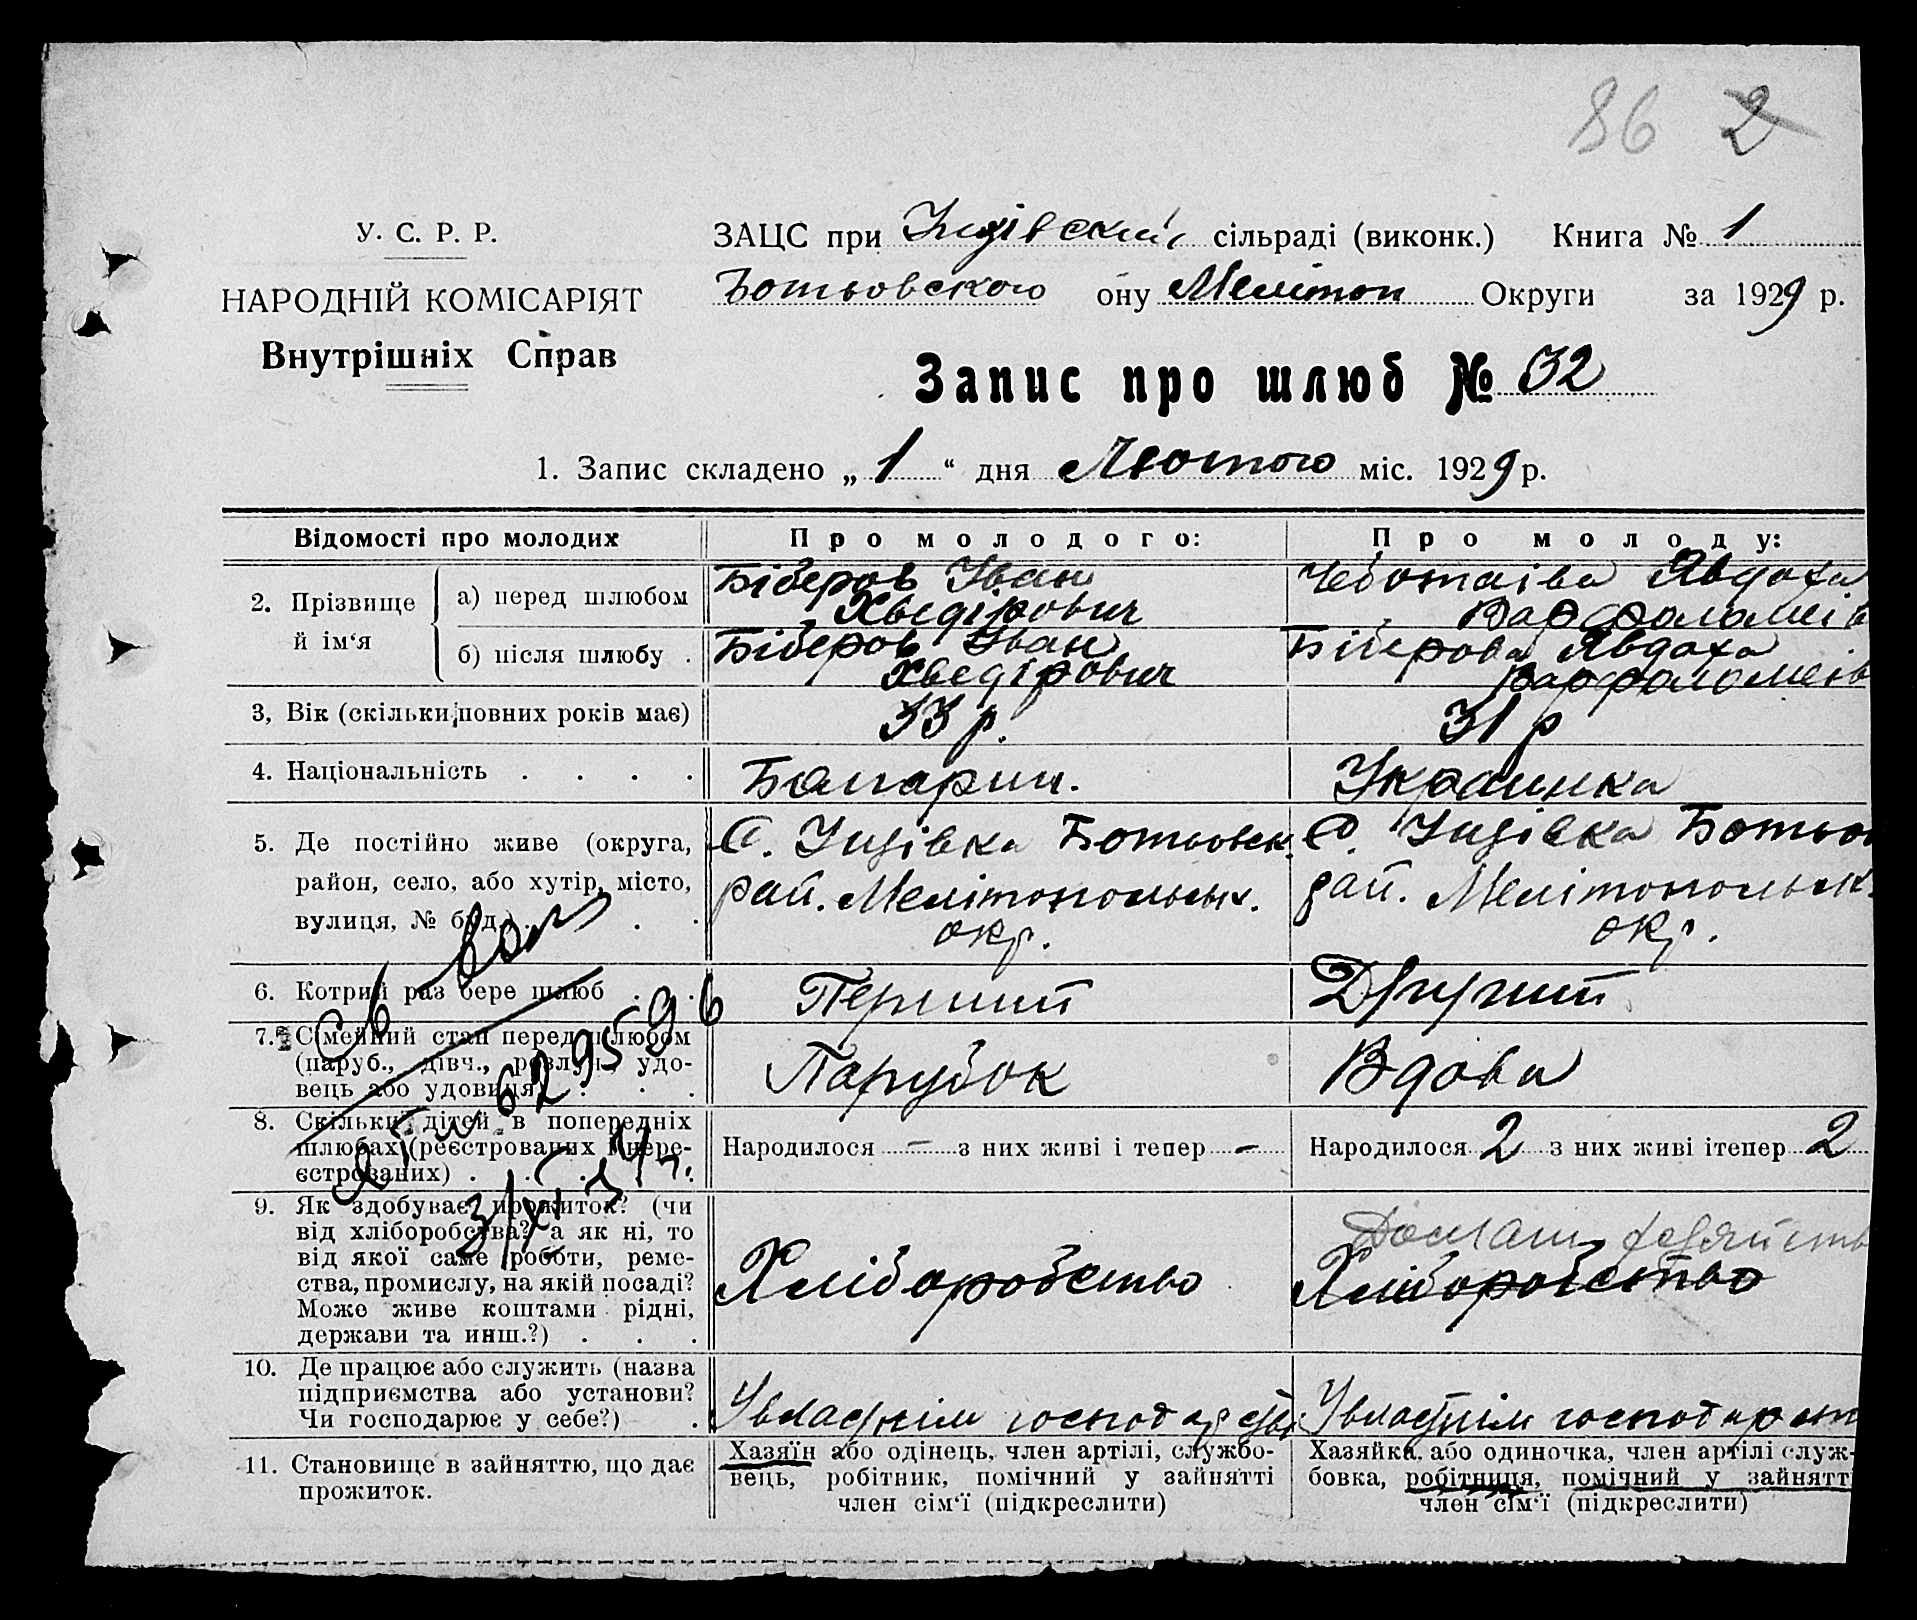 86 2
У. С. Р. Р.
НАРОДНІЙ КОМІСАРІЯТ
Внутрішніх Справ
ЗАЦС при Інзівский сільраді (виконк.) Книга № 1
Ботьовского ону Мелітоп Округи за 1929 р.
Запис про шлюб № 32
1. Запис складено „ 1 “ дня Лютого міс. 1929 р.
Відомості про молодих
Про молодого:
Про молоду:
2. Прізвище й ім‘я
а) перед шлюбом
Біберов Іван
Хведірович
Чеботаіва Явдоха
Варфоломеів
б) після шлюбу .
Біберов Іван
Хведірович
Біберова Явдоха
Варфоломеів
3, Вік (скільки повних років має)
33 р.
31 р
4. Національність . . . .
Болгарин.
Украинка
5. Де постійно живе (округа,
район, село, або хутір, місто,
вулиця, № буд.) . . .
С. Інзівка Ботьовск.
рай. Мелітопольск.
окр.
С. Інзівка Ботьов
рай. Мелітопольск.
окр.
6. Котрий раз бере шлюб . .
Перший
Другий
7. Сімейний стан перед шлюбом
(паруб., дівч., розлуч., удо-
вець або удовиця) . . .
Парубок
Вдова
8. Скільки дітей в попередніх
шлюбах (реєстрованих і нере-
єстрованих) . . . .
Народилося – з них живі і тепер –
Народилося 2 з них живі ітепер 2
9. Як здобуває прожиток? (чи
від хліборобства? а як ні, то
від якої саме роботи, реме-
ства, промислу, на якій посаді?
Може живе коштами рідні,
держави та инш.?) . . .
Хліборобство
Домаш. хозяйств
Хліборобство
10. Де працює або служить (назва
підприємства або установи?
Чи господарює у себе?) .
У власнім господарстві
У власнім господарст
11. Становище в зайняттю, що дає
прожиток.
Хазяїн або одінець, член артілі, службо-
вець, робітник, помічний у зайнятті
член сім‘ї (підкреслити)
Хазяйка, або одиночка, член артілі служ-
бовка, робітниця, помічний у зайнятті
член сім‘ї (підкреслити)
св-во
629596
3/XI